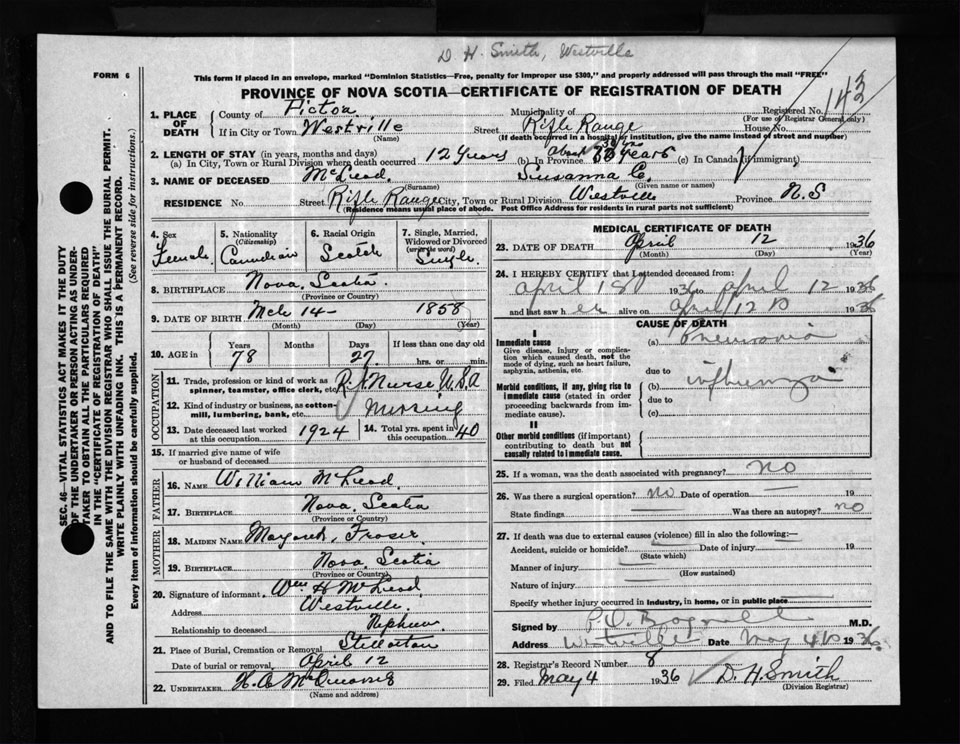 D H. Smith, Westville
FORM 6
This form if placed in an envelope, marked "Dominion Statistics—Free, penalty for improper use $300," and properly addressed will pass through the mail "FREE"
PROVINCE OF NOVA SCOTIA—CERTIFICATE OF REGISTRATION OF DEATH
143
1. PLACE OF DEATH
County of Pictou
Municipality of
Registered No.
(For use of Registrar General only)
If in City or Town Westville
(Name)
Street Rifle Range
House No.
(If death occurred in a hospital or institution, give the name instead of street and number)
2. LENGTH OF STAY (in years, months and days)
(a) In City, Town or Rural Division where death occurred 12 Years
(b) In Province about years
(c) In Canada (if immigrant)
3. NAME OF DECEASED McLeod
(Surname)
Susanna C.
(Given name or names)
RESIDENCE No. Street Rifle Range City, Town or Rural Division Westville Province N.S
(Residence means usual place of abode. Post Office Address for residents in rural parts not sufficient)
4. Sex
Female
5. Nationality
(Citizenship)
Canadian
6. Racial Origin
Scotch
7. Single, Married, Widowed or Divorced
(write the word)
Single
8. BIRTHPLACE Nova Scotia
(Province or Country)
9. DATE OF BIRTH Mch 14 - 1858
(Month) (Day) (Year)
10. AGE in
Years 78
Months
Days 27
If less than one day old
hrs. or min.
OCCUPATION
11. Trade, profession or kind of work as spinner, teamster, office clerk, etc. R.N. Nurse U.S.A
12. Kind of industry or business, as cotton-mill, lumbering, bank, etc. Nursing
13. Date deceased last worked at this occupation 1924
14. Total yrs. spent in this occupation 40
15. If married give name of wife or husband of deceased
FATHER
16. NAME William McLeod
17. BIRTHPLACE Nova Scotia
(Province or Country)
MOTHER
18. MAIDEN NAME Margaret Fraser
19. BIRTHPLACE Nova Scotia
(Province or Country)
20. Signature of informant Wm H McLeod
Address Westville
Relationship to deceased Nephew
21. Place of Burial, Cremation or Removal Stellarton
Date of burial or removal April 12
22. UNDERTAKER
(Name and address)
MEDICAL CERTIFICATE OF DEATH
23. DATE OF DEATH April 12 1936
(Month) (Day) (Year)
24. I HEREBY CERTIFY that I attended deceased from:
April 1936 to April 12 1936
and last saw her alive on April 12 1936
CAUSE OF DEATH
I
Immediate cause
Give disease, injury or complication which caused death, not the mode of dying, such as heart failure, asphyxia, asthenia, etc.
(a) Pneumonia
due to
Morbid conditions, if any, giving rise to immediate cause (stated in order proceeding backwards from immediate cause).
(b) influenza
due to
(c)
II
Other morbid conditions (if important) contributing to death but not causally related to immediate cause.
25. If a woman, was the death associated with pregnancy? no
26. Was there a surgical operation? no Date of operation 19
State findings Was there an autopsy? no
27. If death was due to external causes (violence) fill in also the following:—
Accident, suicide or homicide? Date of injury 19
(State which)
Manner of injury
(How sustained)
Nature of injury
Specify whether injury occurred in industry, in home, or in public place
Signed by M.D.
Address Westville Date May 4 1936
28. Registrar's Record Number 8
29. Filed May 4 1936 D. H. Smith
(Division Registrar)
SEC. 46—VITAL STATISTICS ACT MAKES IT THE DUTY
OF THE UNDERTAKER OR PERSON ACTING AS UNDERTAKER TO OBTAIN ALL THE PARTICULARS REQUIRED
IN THE "CERTIFICATE OF REGISTRATION OF DEATH"
AND TO FILE THE SAME WITH THE DIVISION REGISTRAR WHO SHALL ISSUE THE BURIAL PERMIT.
WRITE PLAINLY WITH UNFADING INK. THIS IS A PERMANENT RECORD.
Every item of information should be carefully supplied. (See reverse side for instructions.)